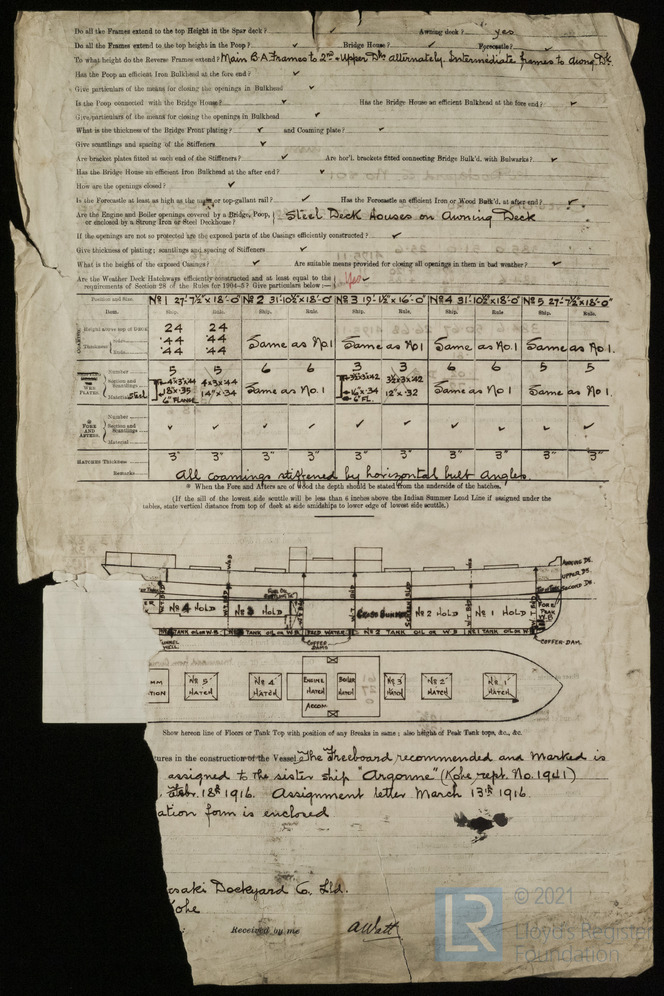 Do all the Frames extend to the top Height in the Spar deck? ✓ Awning deck? yes
Do all the Frames extend to the top height in the Poop? ✓ Bridge House? ✓ Forecastle? ✓
To what height do the Reverse Frames extend? Main B A Frames to 2nd & Upper Dks alternately. Intermediate frames to Awng Dk.
Has the Poop an efficient Iron Bulkhead at the fore end? ✓
Give particulars of the means for closing the openings in Bulkhead ✓
Is the Poop connected with the Bridge House? ✓ Has the Bridge House an efficient Bulkhead at the fore end? ✓
Give particulars of the means for closing the openings in Bulkhead ✓
What is the thickness of the Bridge Front plating? ✓ and Coaming plate? ✓
Give scantlings and spacing of the Stiffeners ✓
Are bracket plates fitted at each end of the Stiffeners? ✓ Are hor'l. brackets fitted connecting Bridge Bulk'd. with Bulwarks? ✓
Has the Bridge House an efficient Iron Bulkhead at the after end? ✓
How are the openings closed? ✓
Is the Forecastle at least as high as the main or top-gallant rail? ✓ Has the Forecastle an efficient Iron or Wood Bulk'd. at after end? ✓
Are the Engine and Boiler openings covered by a Bridge, Poop, or enclosed by a Strong Iron or Steel Deckhouse? Steel Deck Houses on Awning Deck
If the openings are not so protected are the exposed parts of the Casings efficiently constructed? ✓
Give thickness of plating; scantlings and spacing of Stiffeners ✓
What is the height of the exposed Casings? ✓ Are suitable means provided for closing all openings in them in bad weather? ✓
Are the Weather Deck Hatchways efficiently constructed and at least equal to the requirements of Section 28 of the Rules for 1904-5? Give particulars below:— Yes ✓
Position and Size. No 1 27'-7½" x 18'-0" No 2 31'-10½" x 18'-0" No 3 19'-1½" x 16'-0" No 4 31'-10½" x 18'-0" No 5 27'-7½" x 18'-0"
Item. Ship. Rule. Ship. Rule. Ship. Rule. Ship. Rule. Ship. Rule.
COAMING Height above top of Deck 24 24
Thickness Sides ·44 ·44 Same as No.1 Same as No 1 Same as No.1 Same as No 1.
Ends ·44 ·44
WEB PLATES Number 5 5 6 6 3 3 6 6 5 5
Section and Scantlings 4x3x·44 4x3x·44 3½x3x·42 3½x3x·42
Material Steel 18x·35 14"x·34 Same as No.1 16"x·34 12"x·32 Same as No 1 Same as No 1.
6" FLANGE 6" FL.
* FORE AND AFTERS. Number
Section and Scantlings ✓ ✓ ✓ ✓ ✓ ✓ ✓ ✓ ✓ ✓
Material
HATCHES Thickness 3" 3" 3" 3" 3" 3" 3" 3" 3" 3"
Remarks All coamings stiffened by horizontal bulb angles.
* When the Fore and Afters are of wood the depth should be stated from the underside of the hatches.
(If the sill of the lowest side scuttle will be less than 6 inches above the Indian Summer Load Line if assigned under the
tables, state vertical distance from top of deck at side amidships to lower edge of lowest side scuttle.)
AWNING DK.
UPPER DK.
SECOND DK.
No 4 HOLD No 3 HOLD CROSS BUNKER No 2 HOLD No 1 HOLD FORE PEAK
TANK OIL OR W.B TANK OIL OR W.B FEED WATER No 2 TANK OIL OR W B No 1 TANK OIL OR W.B
TUNNEL WELL COFFER DAMS COFFER-DAM
No 5 HATCH No 4 HATCH ENGINE HATCH BOILER HATCH No 3 HATCH No 2 HATCH No 1 HATCH
ACCOM
Show hereon line of Floors or Tank Top with position of any Breaks in same; also height of Peak Tank tops, &c., &c.
tures in the construction of the Vessel The Freeboard recommended and marked is
assigned to the sister ship "Argonne" (Kobe rept. No. 1941)
Feb. 18th 1916. Assignment letter March 13th 1916.
ation form is enclosed
asaki Dockyard Co, Ltd.
Kobe
Received by me A Watt
LR
© 2021
Lloyd's Register
Foundation